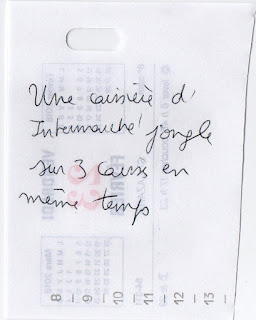 Une caissière d'
Intermarché jongle
sur 3 caisses en
même temps
8 – 9 – 10 – 11 – 12 – 13 –